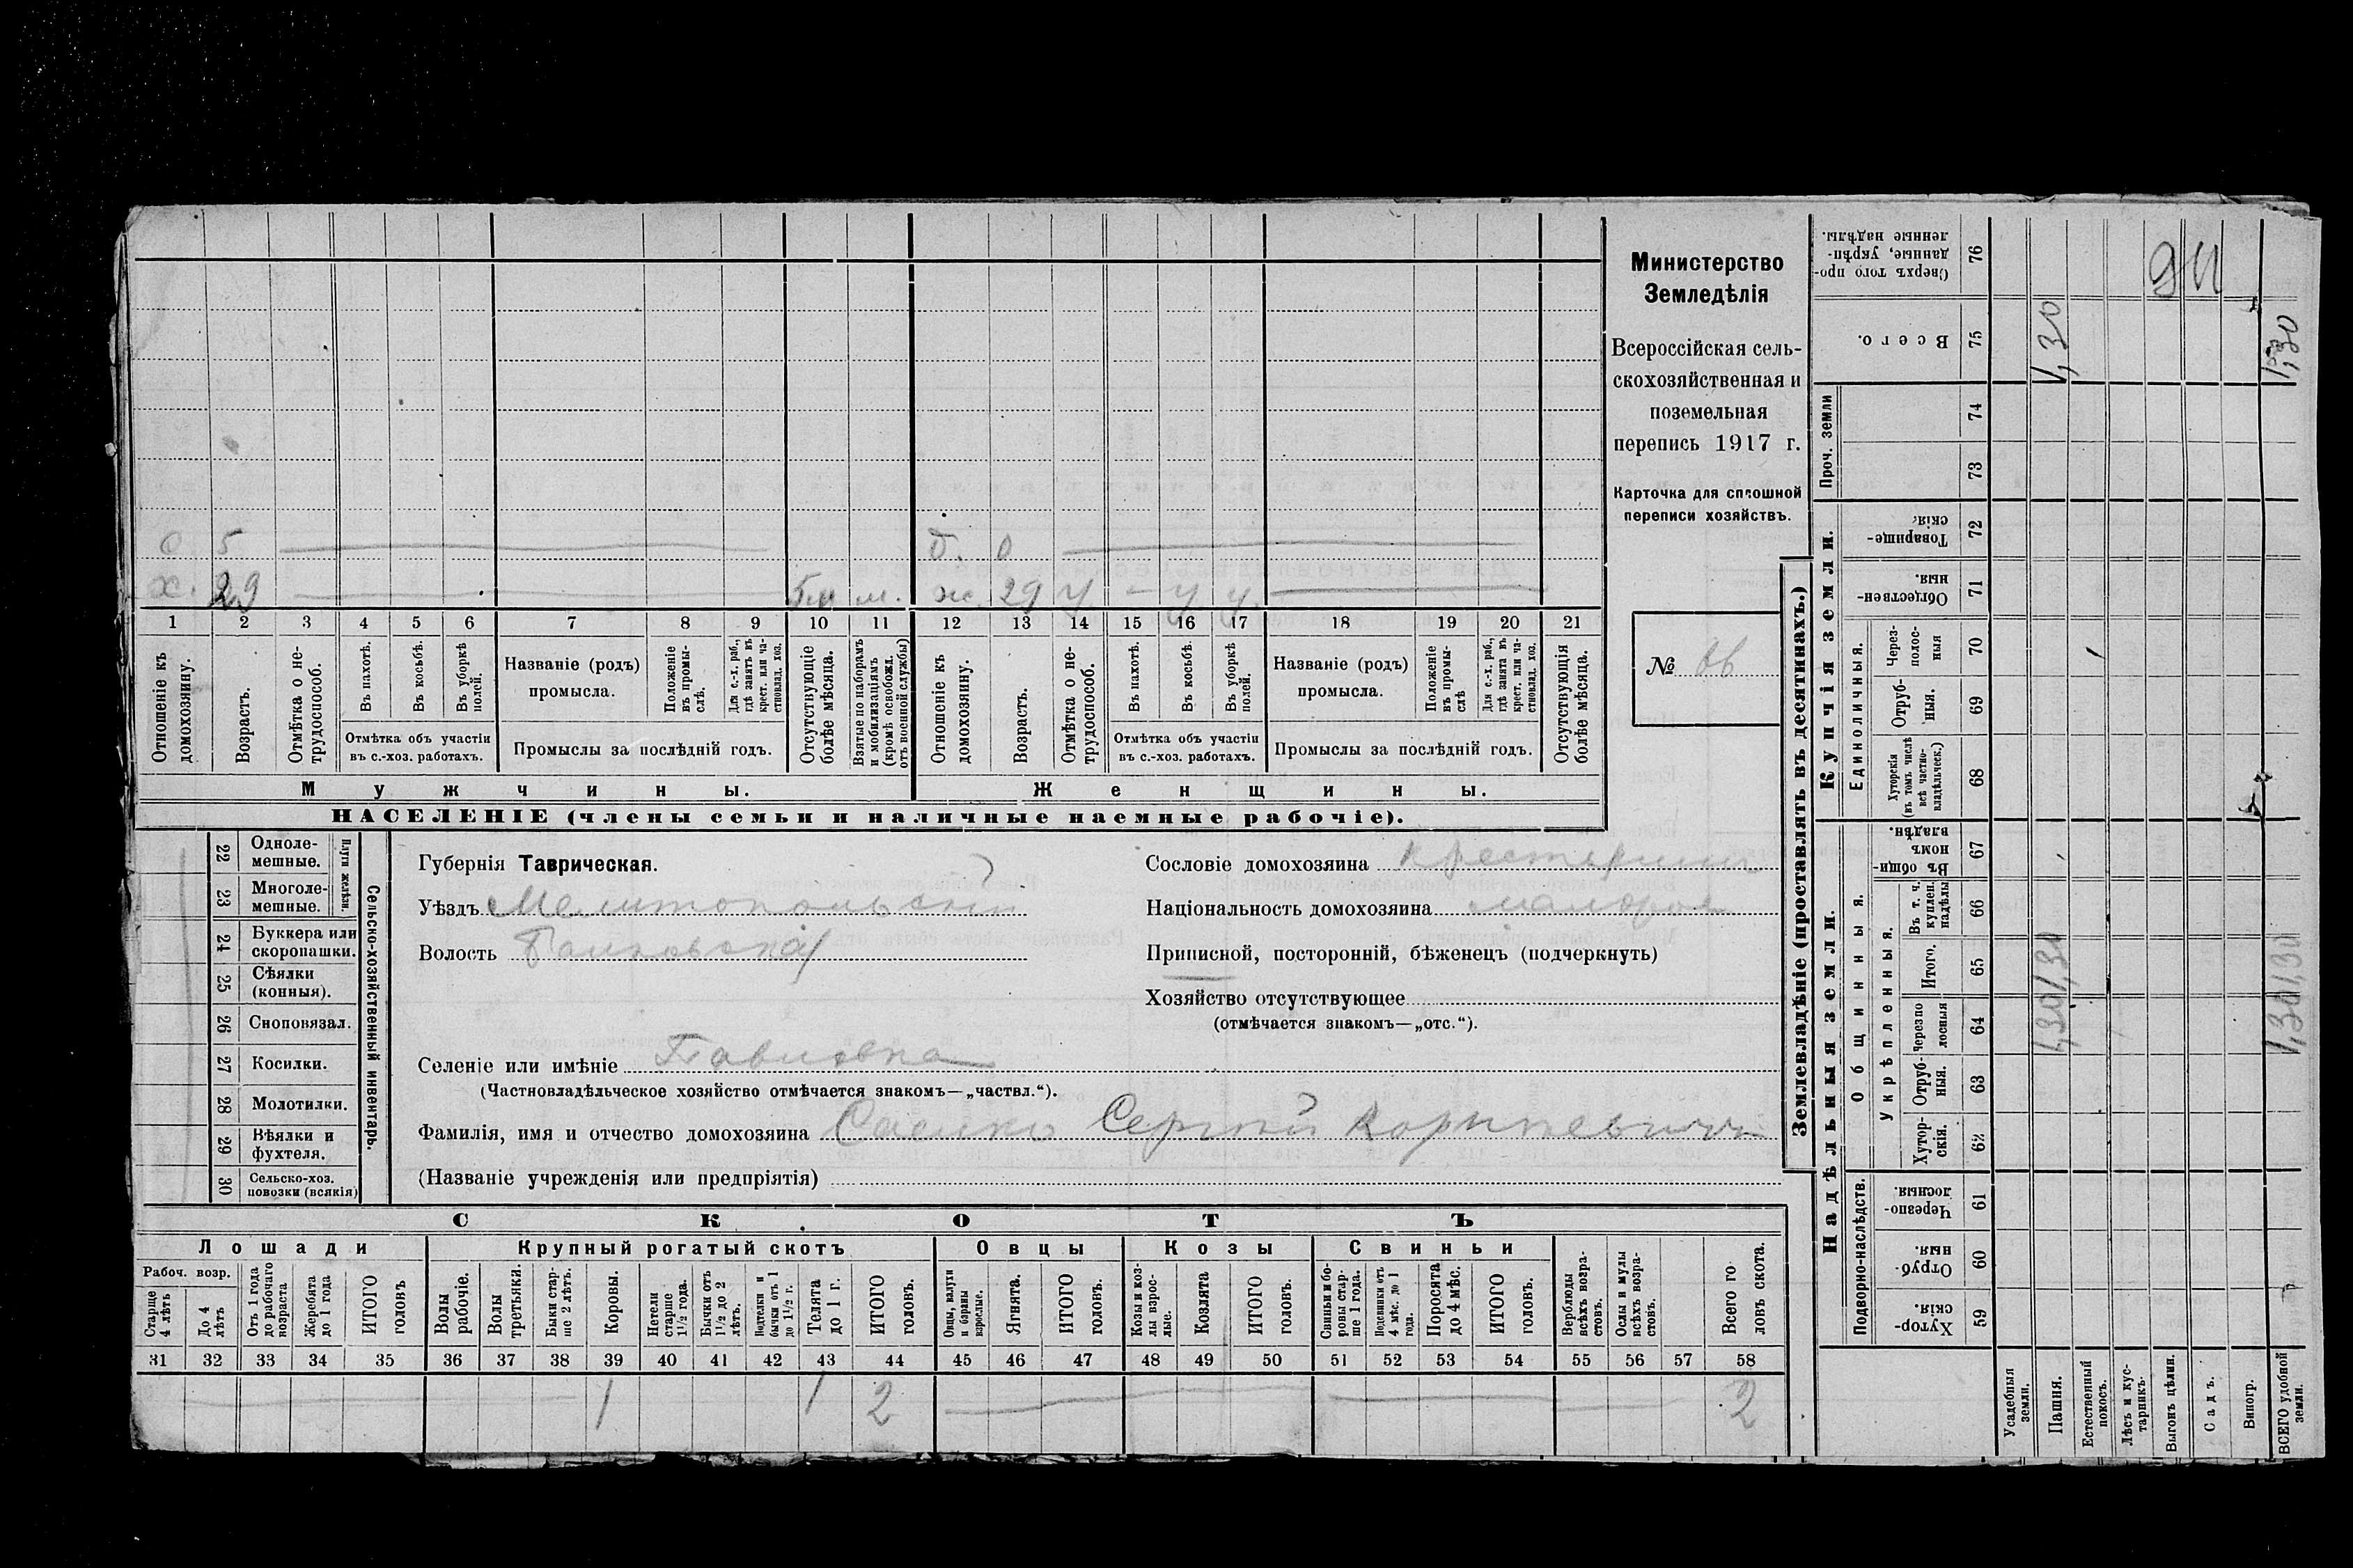 Министерство
Земледѣлія
Всероссійская сель-
скохозяйственная и
поземельная
перепись 1917 г.
Карточка для сплошной
переписи хозяйствъ.
№
с 5
д. 0
х. 29 м. ж. 29 у - у у
1 2 3 4 5 6 7 8 9 10 11 12 13 14 15 16 17 18 19 20 21
Отношеніе къ домохозяину.
Возрастъ.
Отмѣтка о не-трудоспособ.
Въ пахотѣ.
Въ косьбѣ.
Въ уборкѣ полей.
Отмѣтка объ участіи
въ с.-хоз. работахъ.
Названіе (родъ)
промысла.
Положеніе въ промы-слѣ.
Для с.-х. раб., гдѣ занятъ въ крест. или ча-стновлад. хоз.
Промыслы за послѣдній годъ.
Отсутствующіе болѣе мѣсяца.
Взятые по наборамъ и мобилизаціямъ (кромѣ освобожд. отъ военной службы)
Отношеніе къ домохозяину.
Возрастъ.
Отмѣтка о не-трудоспособ.
Въ пахотѣ.
Въ косьбѣ.
Въ уборкѣ полей.
Отмѣтка объ участіи
въ с.-хоз. работахъ.
Названіе (родъ)
промысла.
Положеніе въ промы-слѣ
Для с.-х. раб., гдѣ занята въ крест. или ча-стновлад. хоз.
Промыслы за послѣдній годъ.
Отсутствующія болѣе мѣсяца.
Мужчины.
Женщины.
НАСЕЛЕНІЕ (члены семьи и наличные наемные рабочіе).
Сельско-хозяйственный инвентарь.
Плуги желѣзн.
22 Одноле-мешные.
23 Многоле-мешные.
24 Буккера или скоропашки.
25 Сѣялки (конныя).
26 Сноповязал.
27 Косилки.
28 Молотилки.
29 Вѣялки и фухтеля.
30 Сельско-хоз. повозки (всякія)
Губернія Таврическая.
Уѣздъ Мелитопольскій
Волость
Сословіе домохозяина крестьянинъ
Національность домохозяина малорос
Приписной, посторонній, бѣженецъ (подчеркнуть)
Хозяйство отсутствующее
(отмѣчается знакомъ—„отс.“).
Селеніе или имѣніе Павловка
(Частновладѣльческое хозяйство отмѣчается знакомъ—„частвл.“).
Фамилія, имя и отчество домохозяина Сергѣй
(Названіе учрежденія или предпріятія)
СКОТЪ
Лошади
Рабоч. возр.
Старше 4 лѣтъ
До 4 лѣтъ
Отъ 1 года до рабочаго возраста
Жеребята до 1 года
ИТОГО головъ
Крупный рогатый скотъ
Волы рабочіе.
Волы третьяки.
Быки стар-ше 2 лѣтъ.
Коровы.
Нетели старше 1½ года.
Бычки отъ 1½ до 2 лѣтъ.
Подтелки и бычки отъ 1 до 1½ г.
Телята до 1 г.
ИТОГО головъ.
Овцы
Овцы, валухи и бараны взрослые.
Ягнята.
ИТОГО головъ.
Козы
Козы и коз-лы взрос-лые.
Козлята
ИТОГО головъ.
Свиньи
Свиньи и бо-ровы стар-ше 1 года.
Подсвинки отъ 4 мѣс. до 1 года.
Поросята до 4 мѣс.
ИТОГО головъ.
Верблюды всѣхъ возра-стовъ.
Ослы и мулы всѣхъ возра-стовъ.
Всего го-ловъ скота.
31 32 33 34 35 36 37 38 39 40 41 42 43 44 45 46 47 48 49 50 51 52 53 54 55 56 57 58
1 1 2 2
Землевладѣніе (проставлять въ десятинахъ.)
Надѣльныя земли.
Подворно-наслѣдств.
Хутор-скія. 59
Отруб-ныя. 60
Черезпо-лосныя. 61
Общинныя.
Укрѣпленныя.
Хутор-скія. 62
Отруб-ныя. 63
Черезпо лосныя 64
Итого. 65
Въ т. ч. куплен. надѣлы 66
Въ общин номъ владѣн. 67
Купчія земли.
Единоличныя.
Хуторскія (въ томъ числѣ всѣ частно-владѣльческ.) 68
Отруб-ныя. 69
Через-полос-ныя 70
Обществен-ныя. 71
Товарище-скія. 72
Проч. земли
73
74
Всего. 75
Сверхъ того про-данные, укрѣп-ленные надѣлы. 76
Усадебныя земли.
Пашня. 1,30 1,30 1,30
Естественный покосъ.
Лѣсъ и кус-тарникъ.
Выгонъ цѣлин.
Садъ.
Виногр.
ВСЕГО удобной земли. 1,30 1,30 1,30